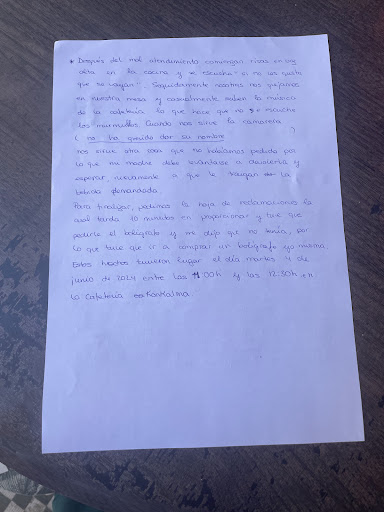 * Después del mal atendimiento comienzan risas en voz
alta en la cocina y se escucha "si no les gusta
que se vayan". Seguidamente nosotros nos quejamos
en nuestra mesa y casualmente suben la música
de la cafetería lo que hace que no se escuche
los murmullos. Cuando nos sirve la camarera
( no ha querido dar su nombre )
nos sirve otra cosa que no habíamos pedido por
lo que mi madre debe levantarse a devolverla y
esperar nuevamente a que le traigan la
bebida demandada.
Para finalizar, pedimos la hoja de reclamaciones la
cual tarda 10 minutos en proporcionar y tuve que
pedirle el bolígrafo y me dijo que no tenía, por
lo que tuve que ir a comprar un bolígrafo yo misma.
Estos hechos tuvieron lugar el día martes 4 de
junio de 2024 entre las 11:00h y las 12:30h en
la cafetería Konkalma.